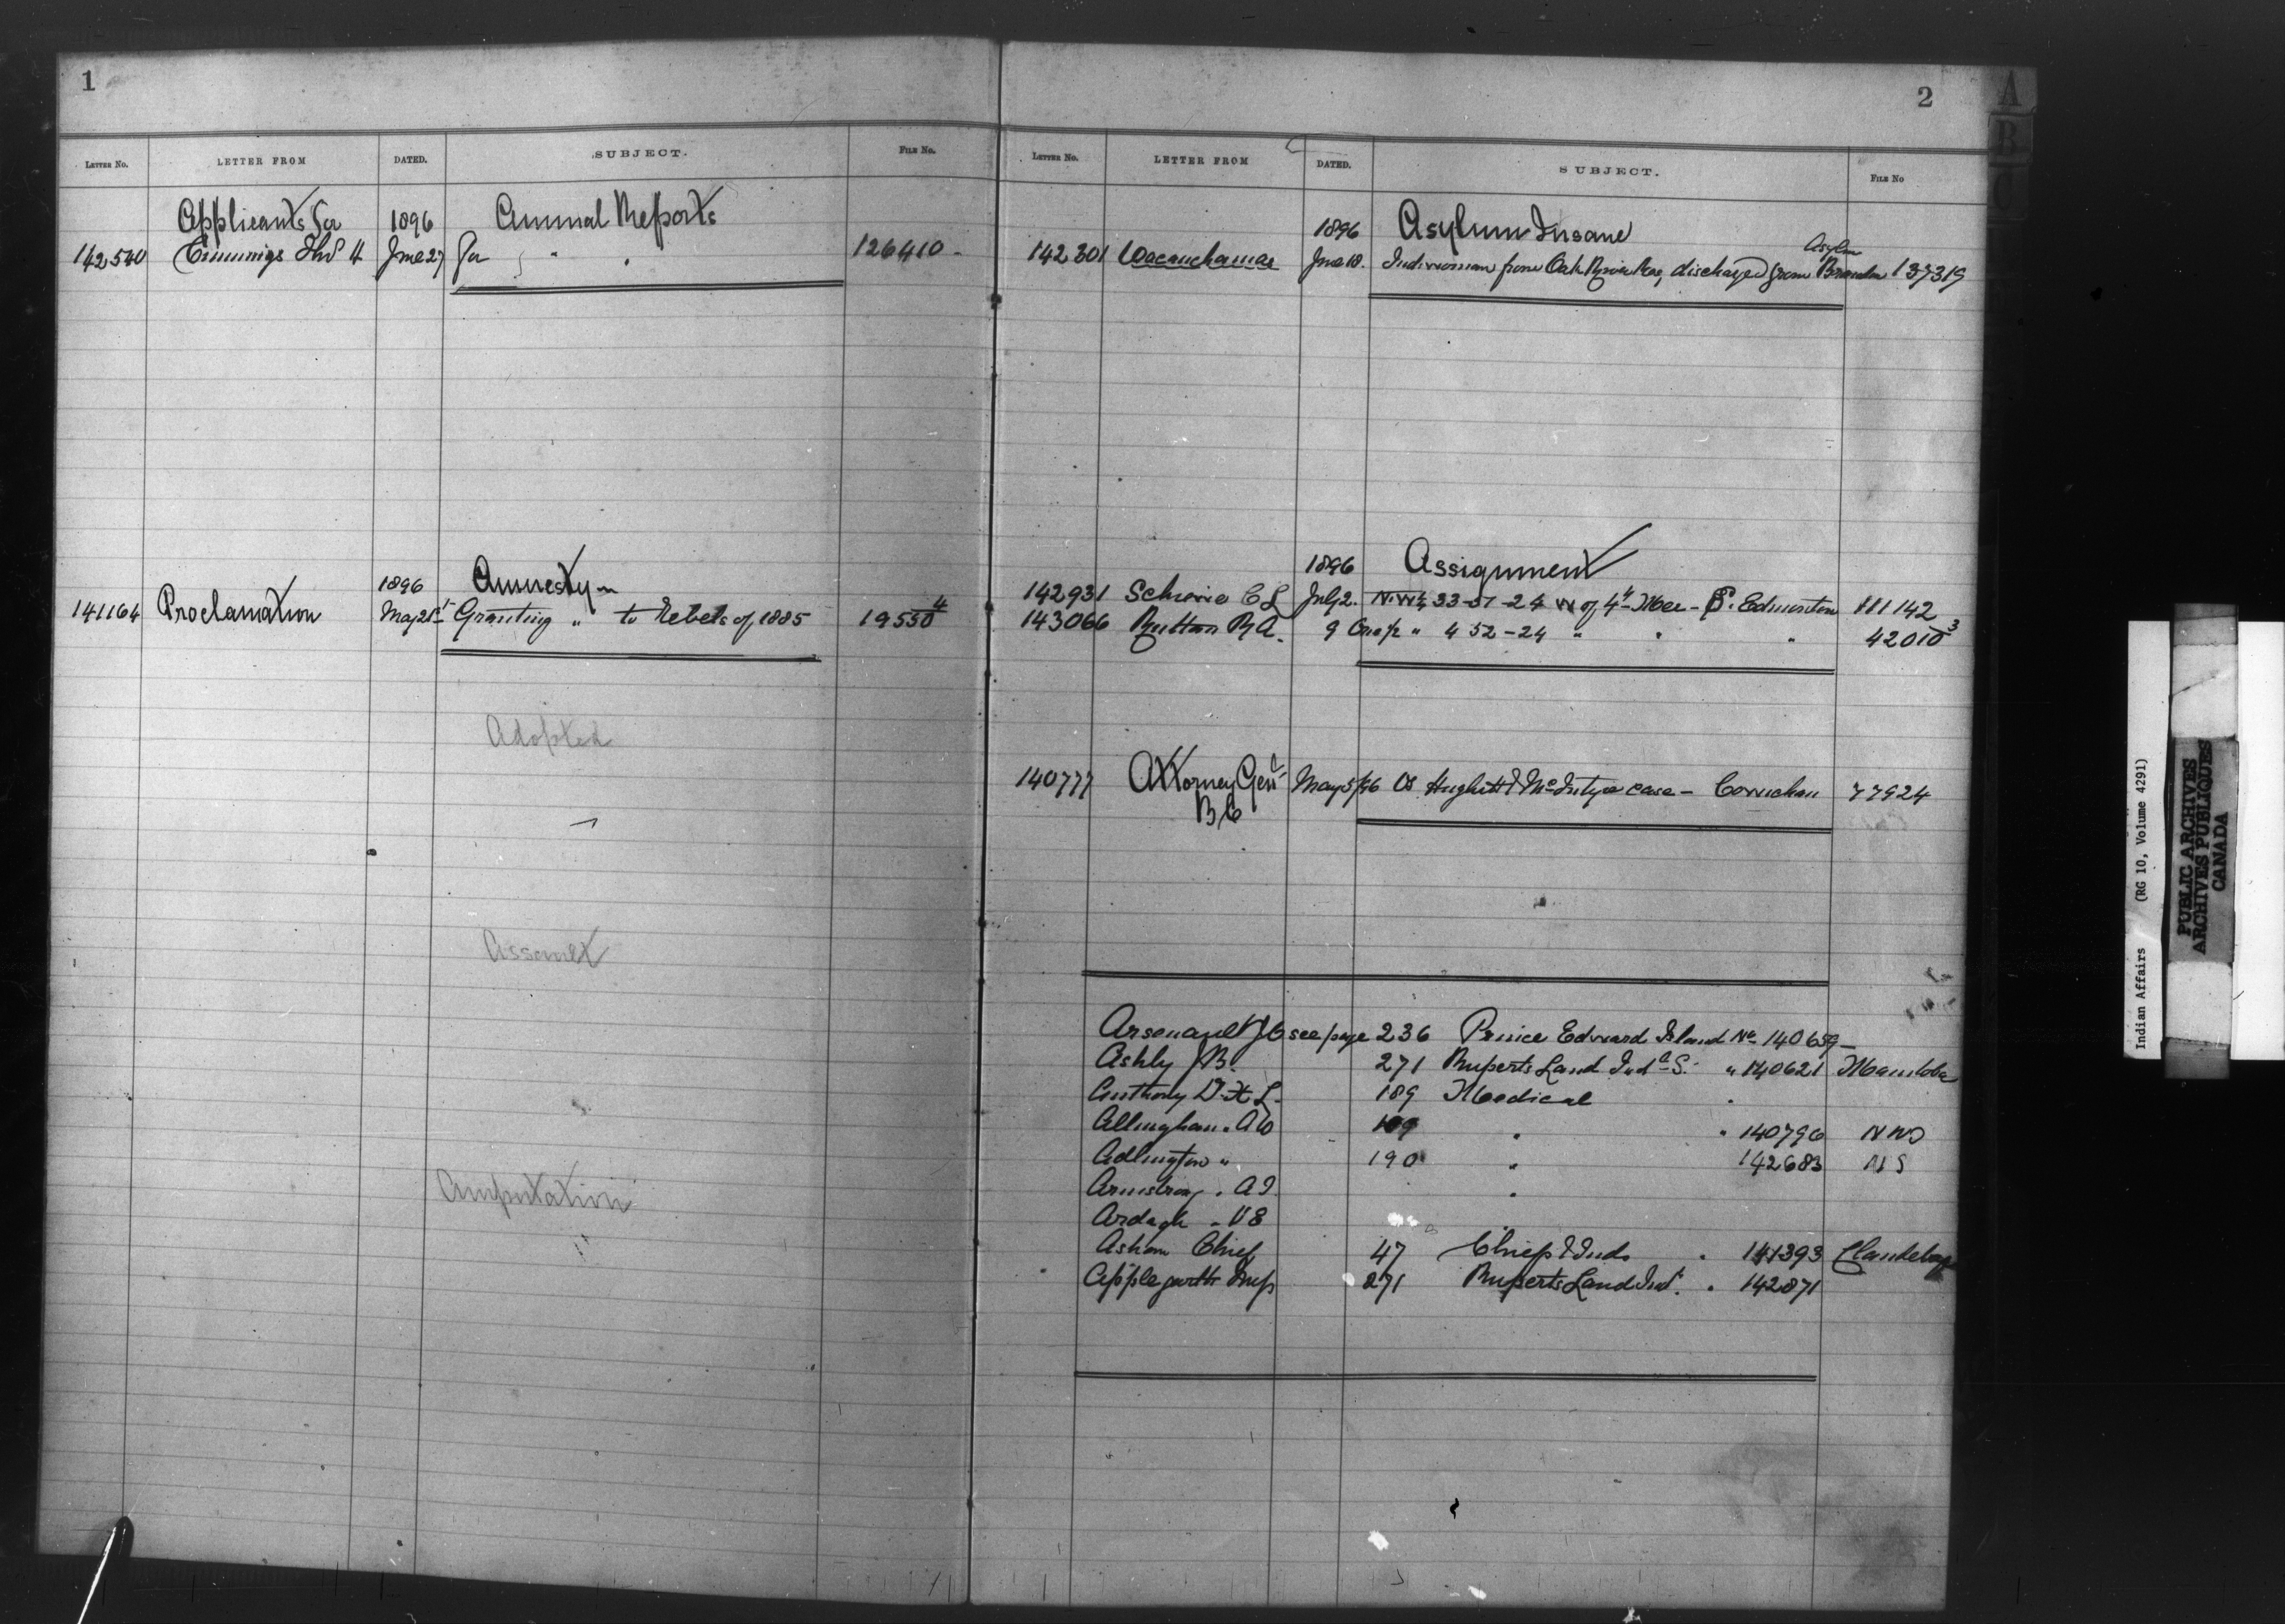 1
LETTER No. LETTER FROM DATED. SUBJECT. FILE No.
Applicants for 1896 Annual Reports
142540 Cummings Thos H June 27 For " " 126410
1896 Amnesty
141164 Proclamation May 21st Granting " to Rebels of 1885 19550 4
Adopted
Assault
Amputation
2
LETTER No. LETTER FROM DATED. SUBJECT. FILE No
1896 Asylum Insane
Asylum
142301 June 18. Ind woman from Oak River Res discharged from Brandon 137319
1896 Assignment
142931 C L July 2. N.W¼ 33-51-24 W of 4th Mer - S. Edmonton 111142
143066 R A. 9 " 4 52-24 " " " 42010 3
140777 Attorney Genl May 5/96 McIntyre case - Cowichan 77924
B.C
Arsenault J O see page 236 Prince Edward Island No 140659
Ashly J B. 271 Ruperts Land Indl S. " 140621 Manitoba
Anthony Dr H L. 189 Medical "
Allingham " A W 189 " " 140796 N W T
Adlington " 190 " 142683 N S
Armstrong " A J. "
Ardagh " V E
Asham Chief 47 Chief & Inds " 141393 Clandeboye
Applegarth Insp 271 Ruperts Land Ind. " 142871
A
B
C
Indian Affairs (RG 10, Volume 4291)
PUBLIC ARCHIVES
ARCHIVES PUBLIQUES
CANADA